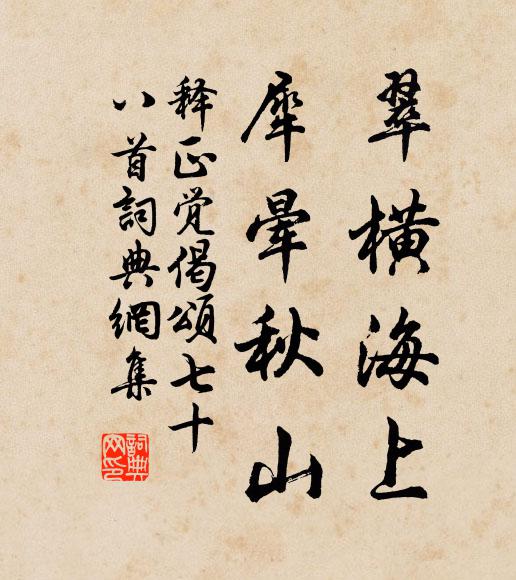 翠横海上
犀晕秋山
释正觉偈颂七十
八首詞典網集
詞典
网印